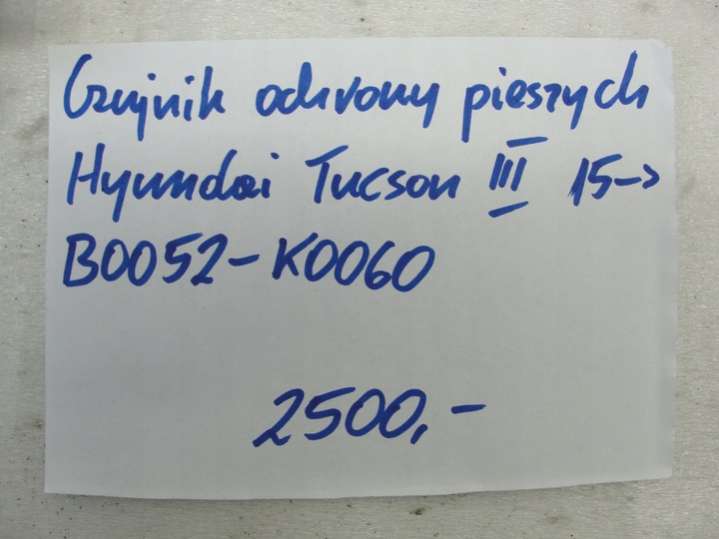 Czujnik ochrony pieszych
Hyundai Tucson III 15->
B0052-K0060
2500,-